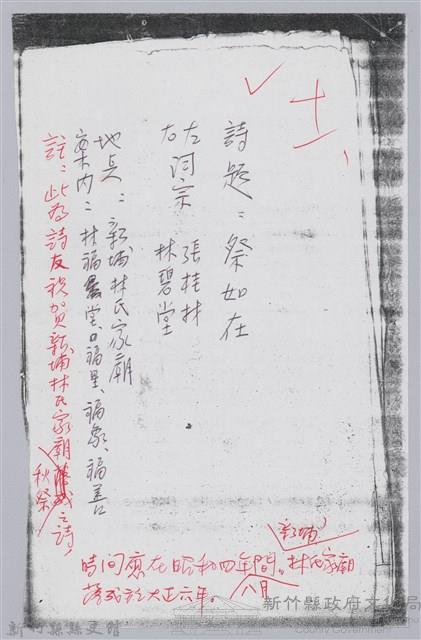 十一、
詩題：祭如在
左詞宗 張桂林
右 林碧堂
地點：新埔林氏家廟
案内：林福堂、福星、福象、福善
註：此為詩友祝賀新埔林氏家廟秋祭之詩，
時间應在昭和四年間。林氏家廟
新埔
落成於大正六年。八月
新竹縣政府文化局
新竹縣縣史館